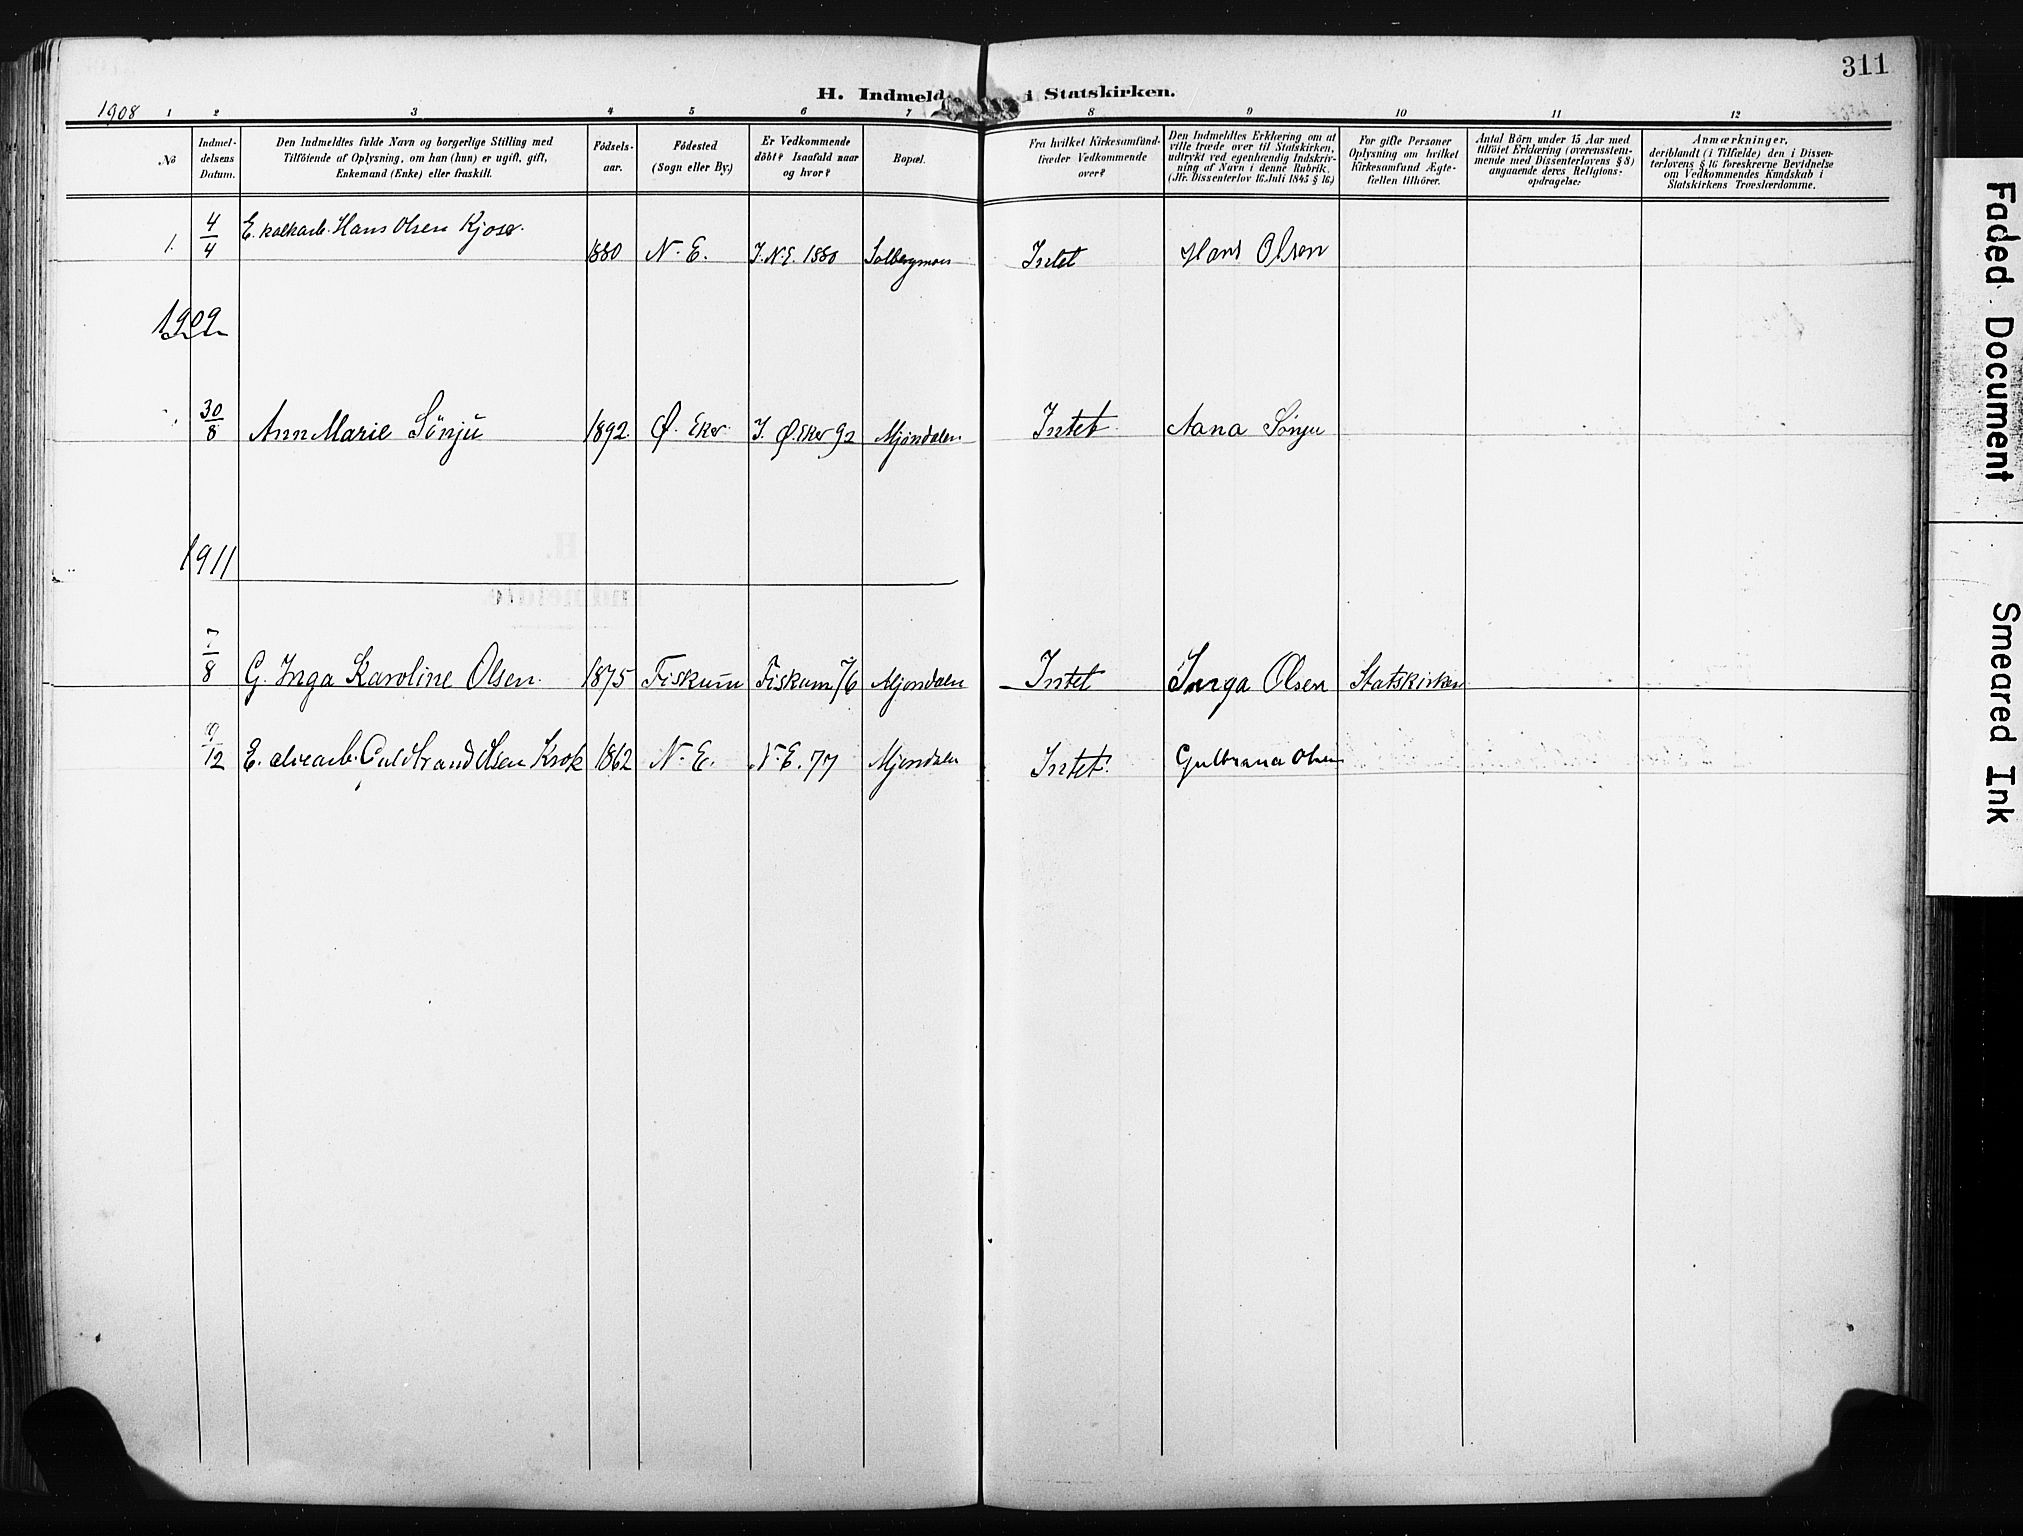 311
H. Indmeld i Statskirken.
1908 1 2 3 4 5 6 7 8 9 10 11 12
No
Indmel-
delsens
Datum.
Den Indmeldtes fulde Navn og borgerlige Stilling med
Tilföiende af Oplysning, om han (hun) er ugift, gift,
Enkemand (Enke) eller fraskilt.
Födsels-
aar.
Födested
(Sogn eller By.)
Er Vedkommende
döbt? Isaafald naar
og hvor?
Bopæl.
Fra hvilket Kirkesamfund
træder Vedkommende
over?
Den Indmeldtes Erklæring om at
ville træde over til Statskirken,
udtrykt ved egenhændig Indskriv-
ning af Navn i denne Rubrik.
(Jfr. Dissenterlov 16 Juli 1845 § 16)
For gifte Personer
Oplysning om hvilket
Kirkesamfund Ægte-
fællen tilhörer.
Antal Börn under 15 Aar med
tilföiet Erklæring (overensstem-
mende med Dissenterlovens § 8)
angaaende deres Religions-
opdragelse:
Anmærkninger,
deriblandt (i Tilfælde) den i Dissen-
terlovens § 16 foreskrevne Bevidnelse
om Vedkommendes Kundskab i
Statskirkens Troeslærdomme.
1. 4/4 E. Hans Olsen Kjos 1880 N. E. I. N.E. 1880 Solbergmoen Intet Hans Olsen
1909
30/8 Ann Marie Sönju 1892 Ø. Eker I. Ø. Eker 92 Mjøndalen Intet Anna Sönju
1911
7/8 G. Inga Karoline Olsen 1875 Fiskum Fiskum 76 Mjøndalen Intet Inga Olsen Statskirken
9/12 E. Guldbrand Olsen Krok 1862 N. E. N. E. 77 Mjøndalen Intet. Gulbrand Olsen
Faded Document
Smeared Ink